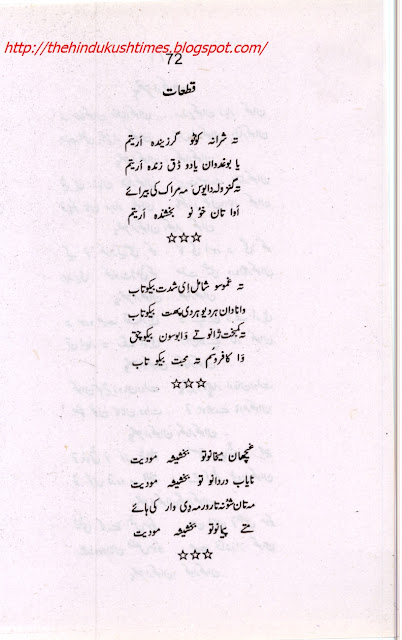 http://thehindukushtimes.blogspot.com/
72
قطعات
تہ شرانہ کوٹو گرزیندہ اَریتم
یا بوغدوان یادو ذق زندہ اَریتم
تہ گنزولہ دایوس مہ مراک کی بیرائے
اَوا تان خونو بخشندہ اَریتم
☆☆☆
تہ غموسو شامل اِی شدت بیکو تاب
وا نادان ہردیو ہردی پھت بیکو تاب
تہ کمبخت ژانوتے وَا بوسون بیکو چق
وَا کافروسُم تہ محبت بیکو تاب
☆☆☆
غچھان میخانوتو بخشیشہ مودیت
نایاب دردانو تو بخشیشہ مودیت
مہ تان شوُنہ تارور مہ دی وار کی ہائے
متے پیانوتو بخشیشہ مودیت
☆☆☆